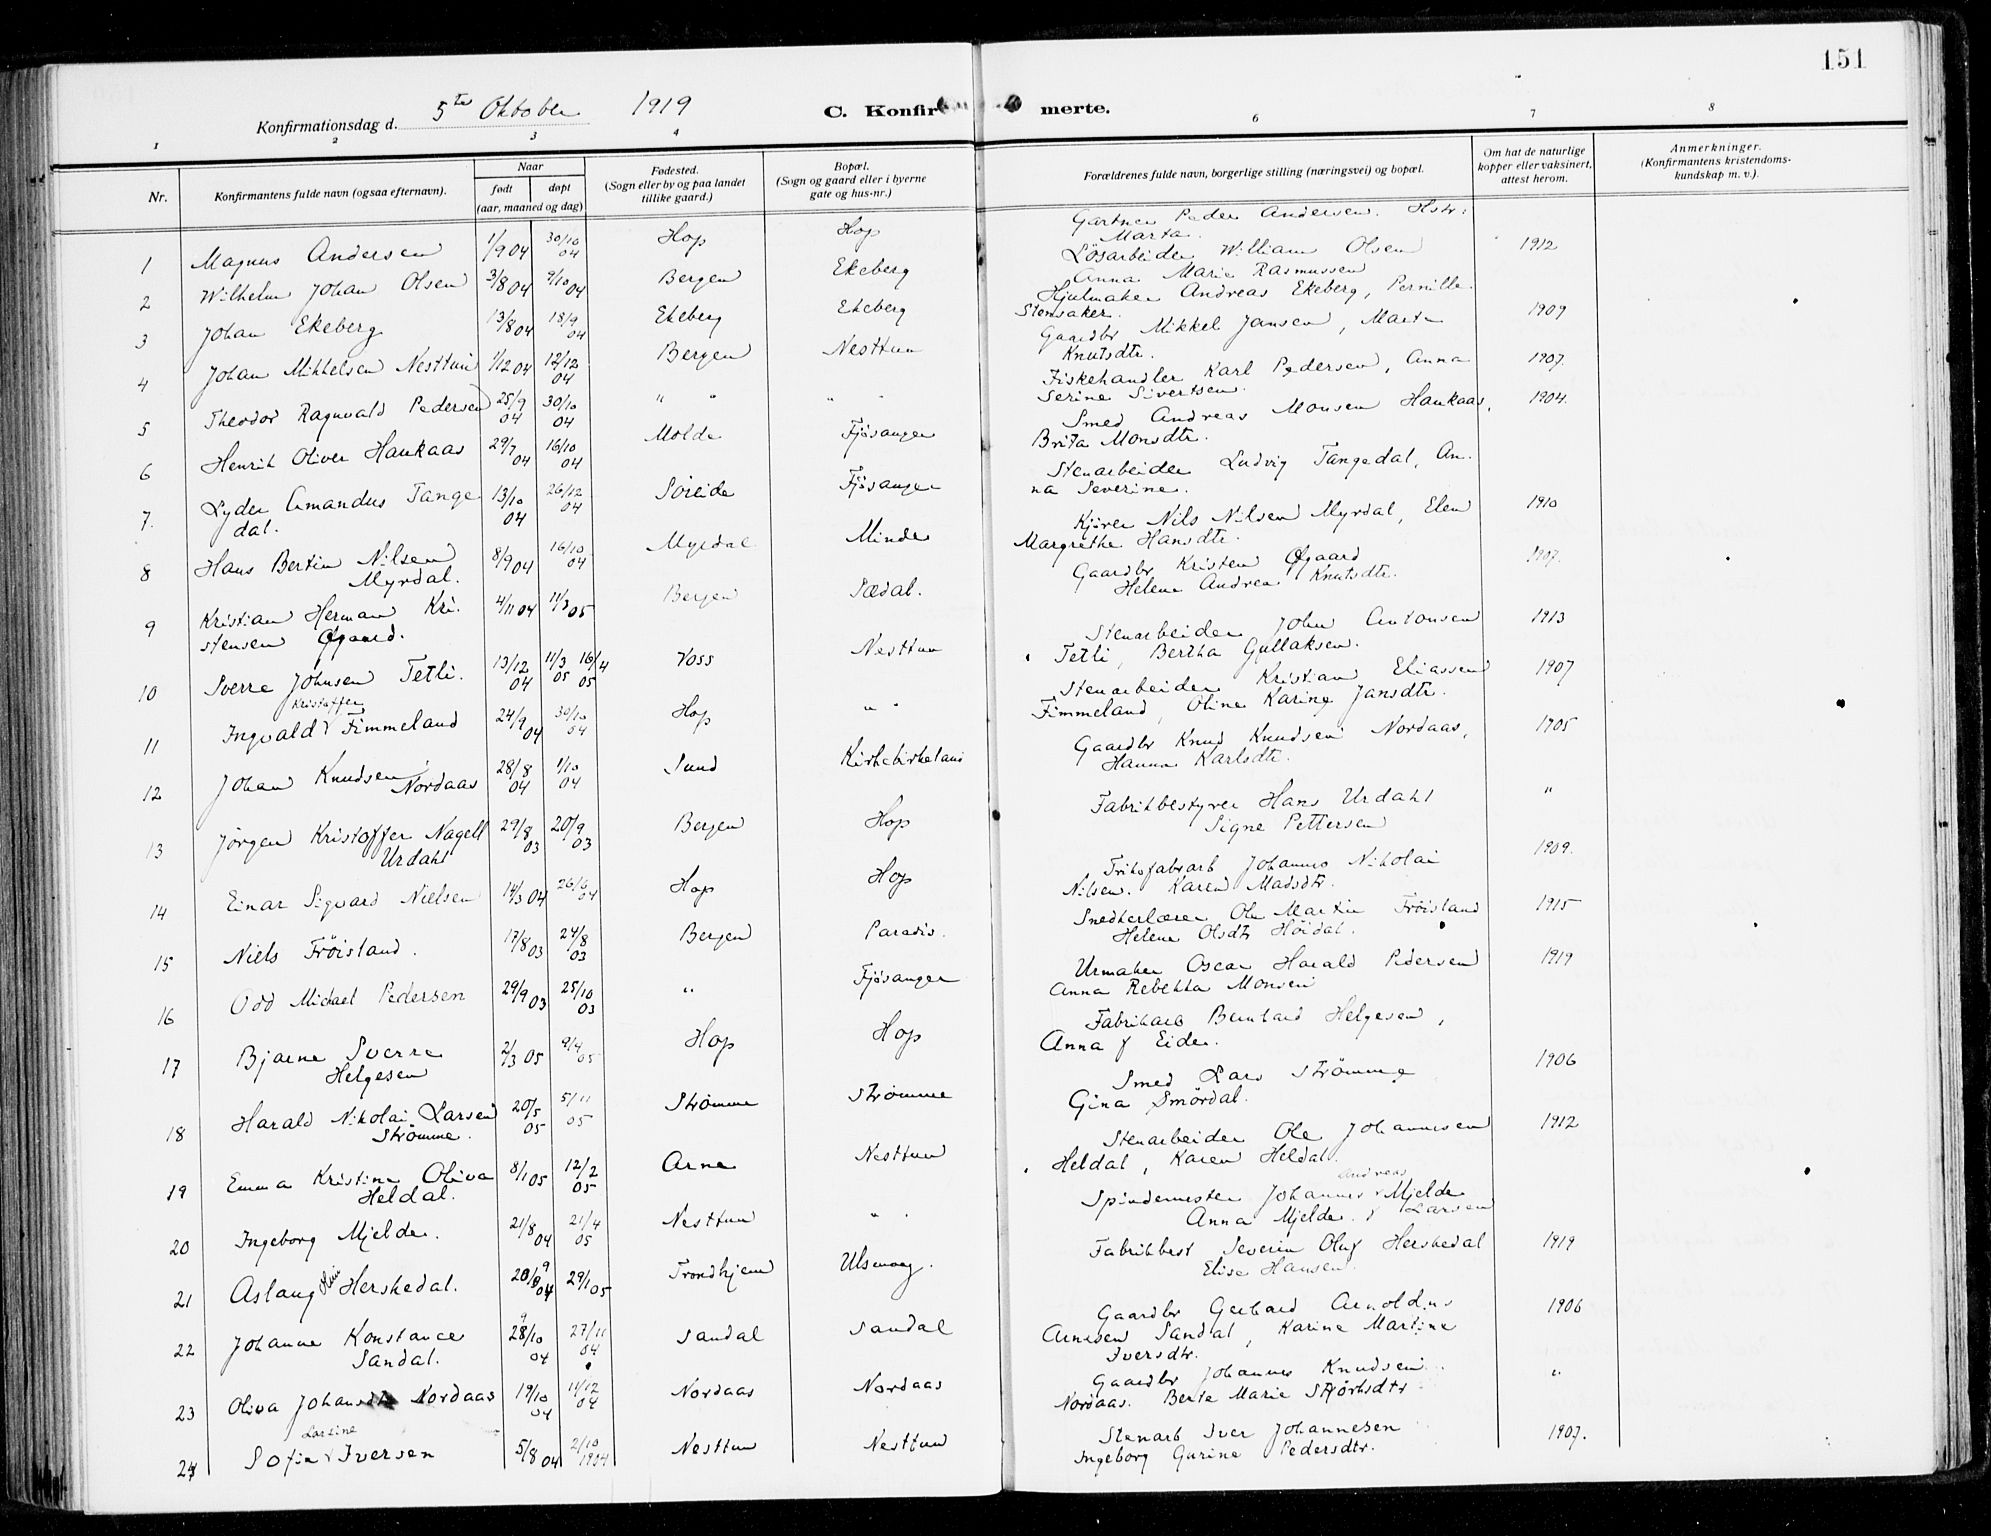 151
Konfirmationsdag d. 5te Oktober 1919 C. Konfir merte.
1 2 3 4 6 7 8
Nr. Konfirmantens fulde navn (ogsaa efternavn). Naar født døpt (aar, maaned og dag) Fødested. (Sogn eller by og paa landet tillike gaard.) Bopæl. (Sogn og gaard eller i byerne gate og hus-nr.) Forældrenes fulde navn, borgerlige stilling (næringsvei) og bopæl. Om hat de naturlige kopper eller vaksinert, attest herom. Anmerkninger. (Konfirmantens kristendoms-kundskap m. v.).
1 Magnus Andersen 1/9 04 30/10 04 Hop Hop Gartner Peder Andersen. Hstr: Marta.
2 Wilhelm Johan Olsen 3/8 04 9/10 04 Bergen Ekeberg Løsarbeider William Olsen Anna Marie Rasmussen 1912
3 Johan Ekeberg 13/8 04 18/9 04 Ekeberg Ekeberg Hjulmaker Andreas Ekeberg, Pernille Stensaker. 1909
4 Johan Mikkelsen Nesttun 1/12 04 12/12 04 Bergen Nesttun Gaardbr Mikkel Jansen, Marta Knutsdtr. 1907.
5 Theodor Ragnvald Pedersen 25/9 04 30/10 04 " " " " Fiskehandler Karl Pedersen, Anna Serine Sivertsen. 1904.
6 Henrik Oliver Haukaas 29/7 04 16/10 04 Molde Fjøsanger Smed Andreas Monsen Haukaas, Brita Monsdtr.
7. Lyder Amandus Tange dal. 13/10 04 26/12 04 Søreide Fjøsanger Stenarbeider Ludvig Tangedal, An. na Severine. 1910
8 Hans Bertin Nilsen Myrdal. 8/9 04 16/10 04 Myrdal Minde Kjører Nils Nilsen Myrdal, Elen Margrethe Hansdtr. 1907.
9 Kristian Herman Kri. stensen Øgaard. 4/11 04 11/3 05 Bergen Sædal. Gaardbr Kristen Øgaard Helene Andrea Knutsdtr. 1913
10 Sverre Johnsen Tetli. 13/12 04 11/3 05 16/4 05 Voss Nesttun Stenarbeider John Antonsen Tetli, Bertha Gullaksen. 1907
11 Ingvald Kristoffer Fimmeland 24/9 04 30/10 04 Hop " " Stenarbeider Kristian Eliassen Fimmeland, Oline Karine Jansdtr. 1905
12 Johan Knudsen Nordaas 28/8 04 1/10 04 Sund Kirkebirkeland Gaardbr Knud Knudsen Nordaas, Hanna Karlsdtr. "
13 Jørgen Kristoffer Nagell Urdahl 29/8 03 20/9 03 Bergen Hop Fabrikbestyrer Hans Urdahl Signe Pettersen 1909.
14 Einar Sigvard Nielsen 14/3 04 26/6 04 Hop Hop Trikofabrarb Johannes Nikolai Nilsen. Karen Madsdtr. 1915
15 Niels Frøisland. 17/8 03 24/8 03 Bergen Paradis. Snedkerlærer Ole Martin Frøisland Helene Olsdtr Høidal. 1919
16 Odd Michael Pedersen 29/9 03 25/10 03 " Fjøsanger Urmaker Oscar Harald Pedersen Anna Rebekka Monsen
17 Bjarne Sverre Helgesen 2/3 05 9/4 05 Hop Hop Fabrikarb Bernhard Helgesen, Anna f Eide. 1906
18 Harald Nikolai Larsen Strømme. 20/5 05 5/11 05 Strømme Strømme Smed Lars Strømme Gina Smørdal. 1912
19 Emma Kristine Oliva Heldal. 8/1 05 12/2 05 Arne Nesttun Stenarbeider Ole Johannesen Heldal, Karen Heldal.
20 Ingeborg Mjelde. 21/8 04 21/4 05 Nesttun " " Spindemester Johannes Andreas Mjelde Anna Mjelde. f Larsen 1919
21 Aslaug Herskedal. 04 29/1 05 Trondhjem Ulsmaag. Fabrikbest Severin Oluf Herskedal Elise Hansen. 1906
22 Johanne Konstance Sandal. 28/10 04 27/11 04 Sandal Sandal Gaardbr Gerhard Arnoldus Arnesen Sandal, Karine Martine Iversdtr. "
23 Oliva Johansdtr Nordaas 19/10 04 11/12 04 Nordaas Nordaas Gaardbr Johannes Knudsen Nordaas. Berte Marie Størksdtr
24 Sofie Lartine Iversen 5/8 04 2/10 1904 Nesttun Nesttun Stenarb Iver Johannesen Ingeborg Gurine Pedersdtr. 1907.